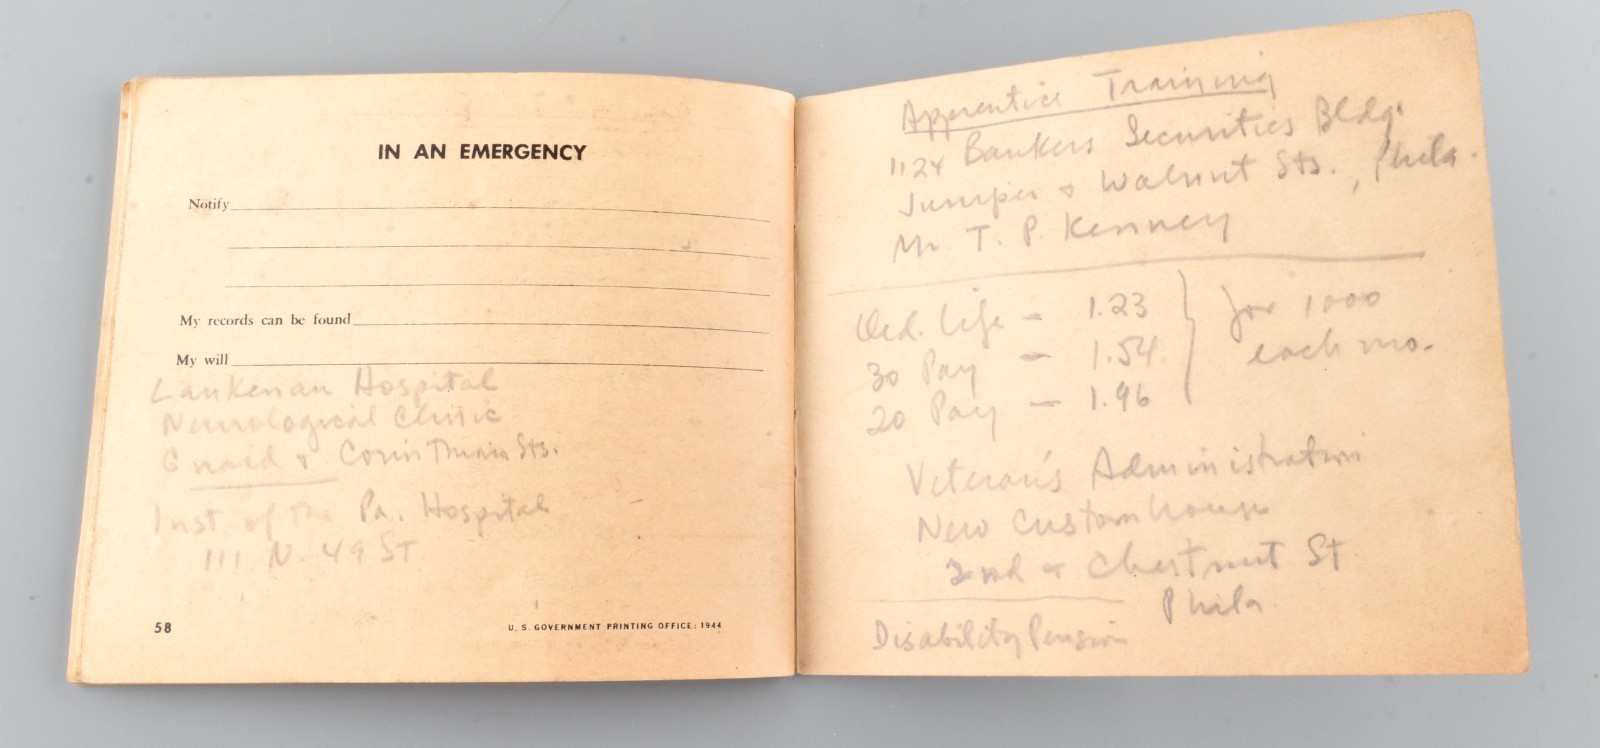 IN AN EMERGENCY
Notify
My records can be found
My will
Lankenau Hospital
Neurological Clinic
& Corinthian Sts.
Inst of the Pa. Hospital
111 N. 49 St
58
U. S. GOVERNMENT PRINTING OFFICE: 1944
Apprentice Training
1124 Bankers Securities Bldg.
Juniper & Walnut Sts., Phila.
Mr. T. P. Kenney
Ord. Life - 1.23
30 Pay - 1.54
20 Pay - 1.96
for 1000
each mo.
Veteran's Administration
New Customhouse
2nd & Chestnut St
Phila.
Disability Pension